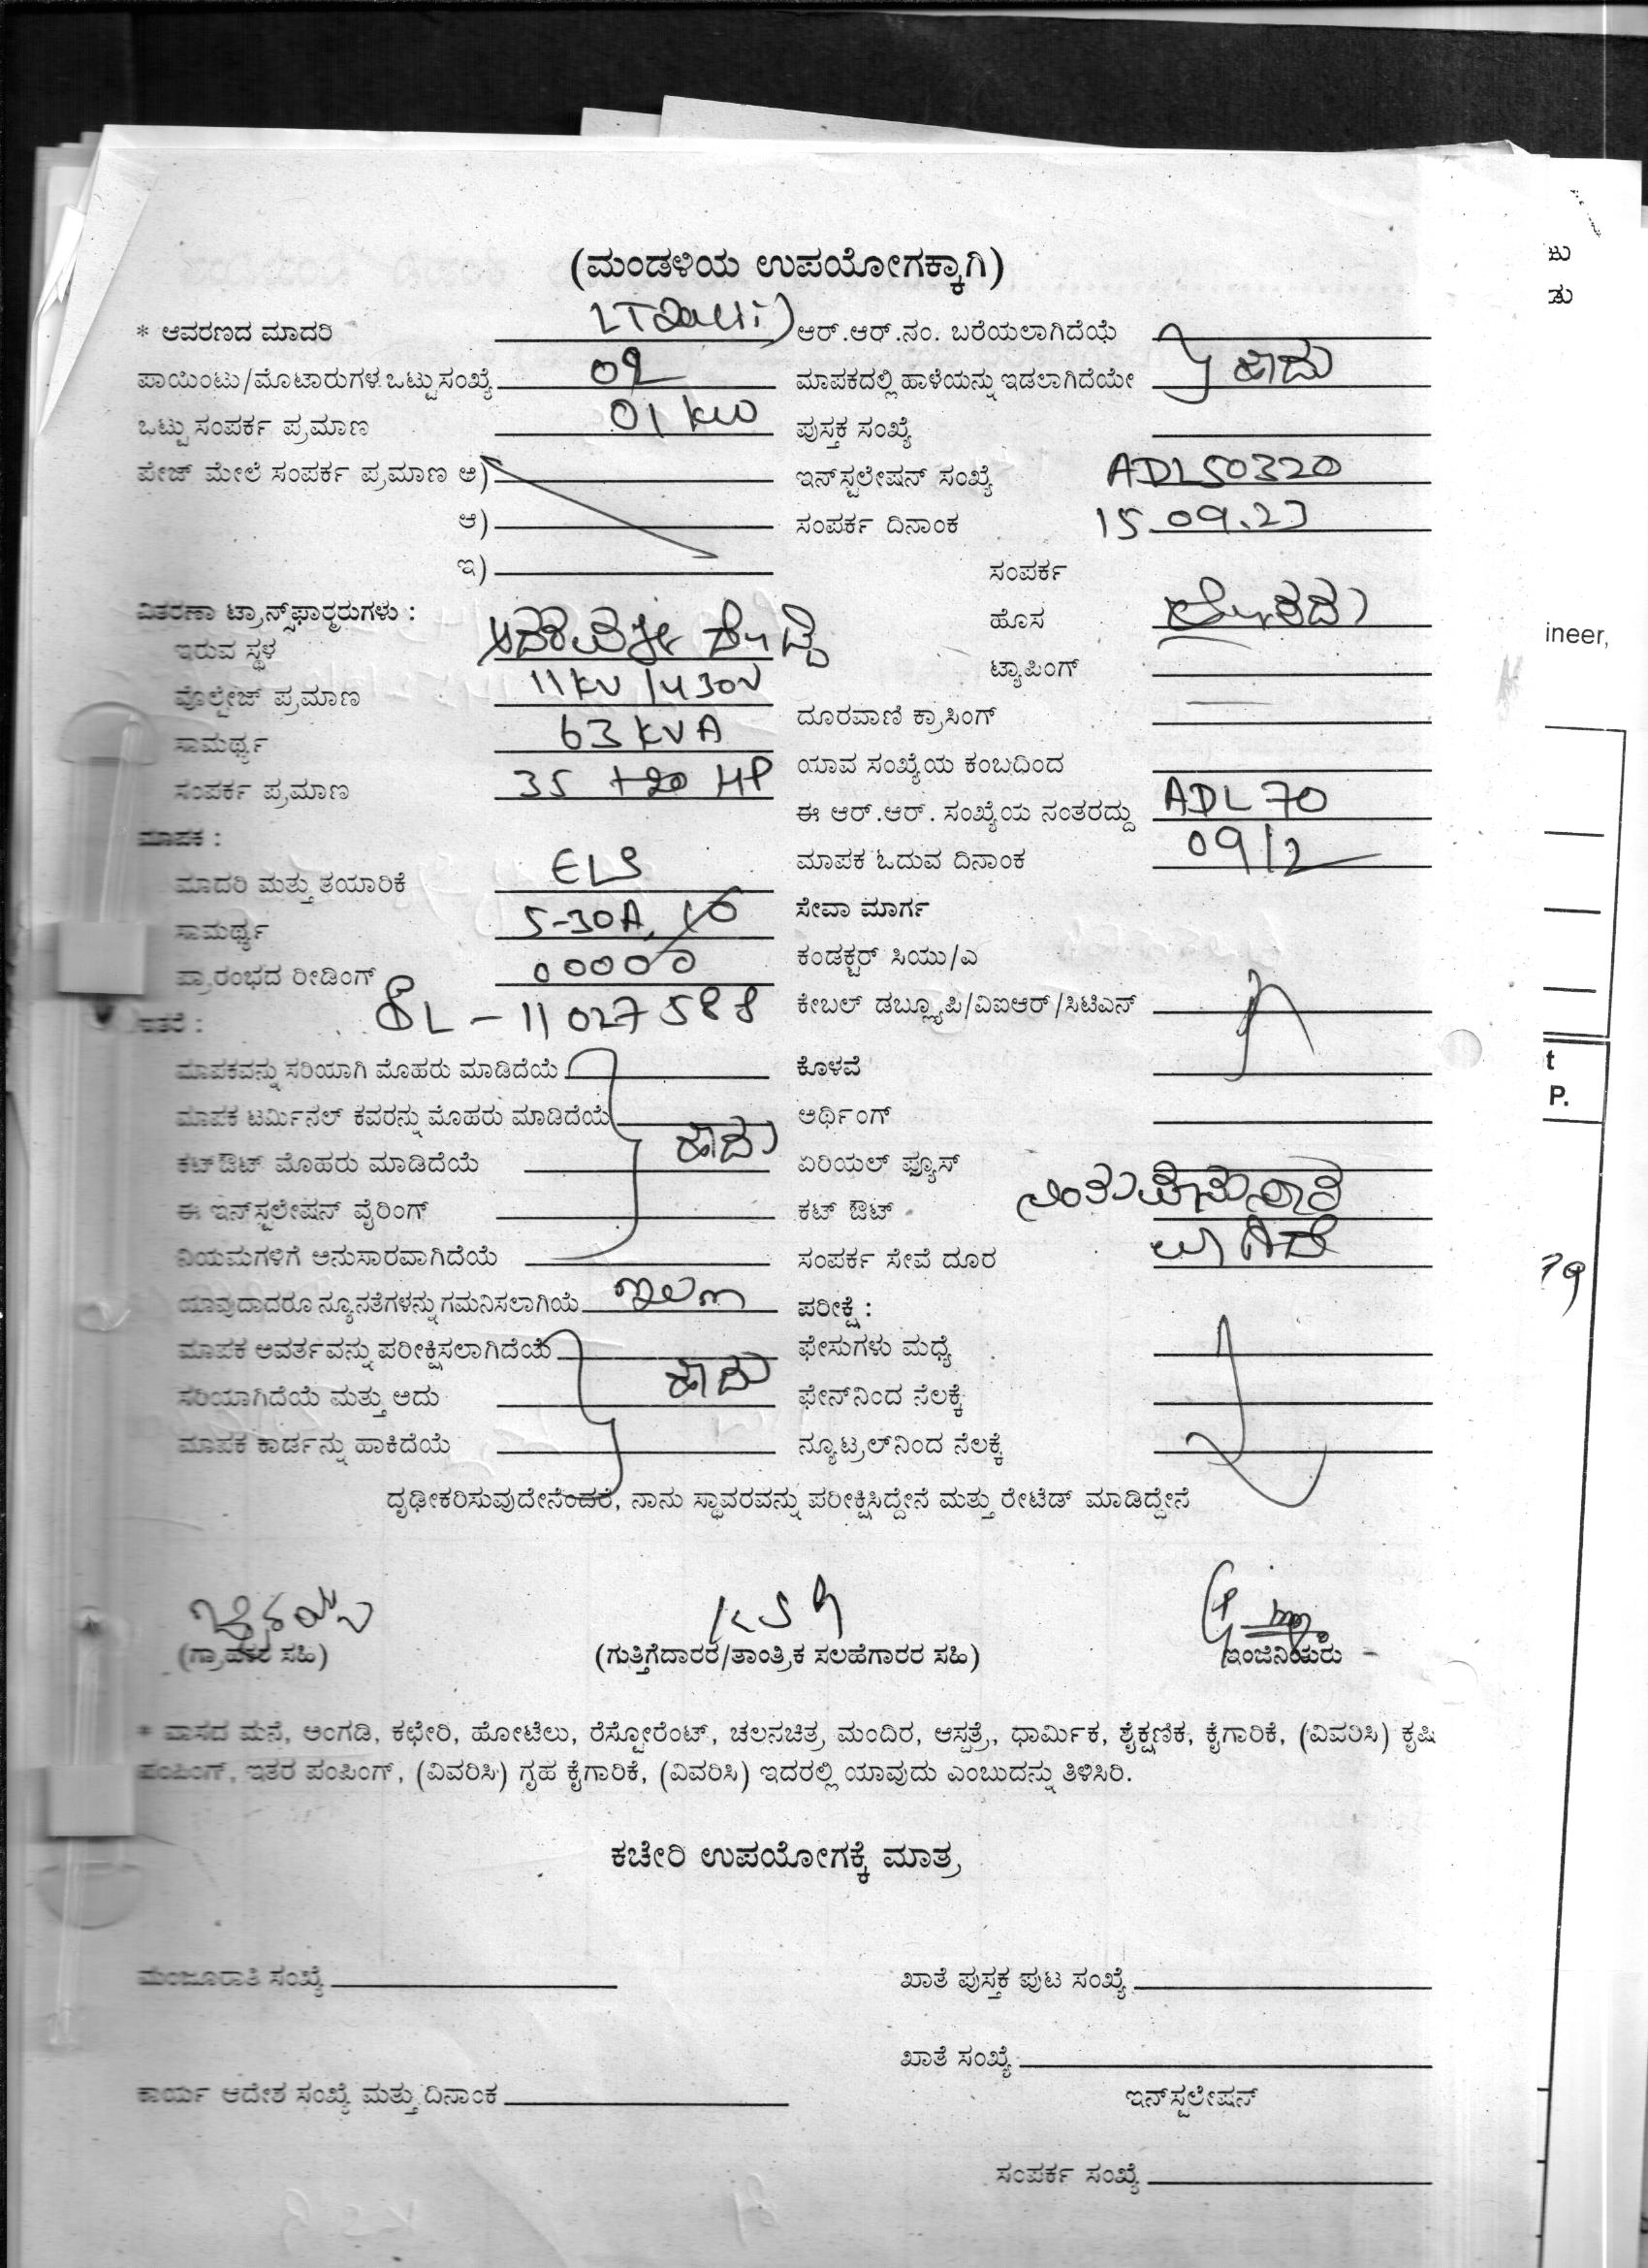 (ಮಂಡಳಿಯ ಉಪಯೋಗಕ್ಕಾಗಿ)
* ಆವರಣದ ಮಾದರಿ ಆರ್.ಆರ್.ನಂ. ಬರೆಯಲಾಗಿದೆಯೆ
ಪಾಯಿಂಟು/ಮೊಟಾರುಗಳ ಒಟ್ಟು ಸಂಖ್ಯೆ 02 ಮಾಪಕದಲ್ಲಿ ಹಾಳೆಯನ್ನು ಇಡಲಾಗಿದೆಯೇ ಹೌದು
ಒಟ್ಟು ಸಂಪರ್ಕ ಪ್ರಮಾಣ 01 KW ಪುಸ್ತಕ ಸಂಖ್ಯೆ
ಪೇಜ್ ಮೇಲೆ ಸಂಪರ್ಕ ಪ್ರಮಾಣ ಅ) ಇನ್‌ಸ್ಟಲೇಷನ್ ಸಂಖ್ಯೆ ADL50320
ಆ) ಸಂಪರ್ಕ ದಿನಾಂಕ 15.09.23
ಇ) ಸಂಪರ್ಕ
ವಿತರಣಾ ಟ್ರಾನ್ಸ್‌ಫಾರ್ಮರುಗಳು : ಹೊಸ
ಇರುವ ಸ್ಥಳ ಟ್ಯಾಪಿಂಗ್
ವೊಲ್ಟೇಜ್ ಪ್ರಮಾಣ 11KV/430V ದೂರವಾಣಿ ಕ್ರಾಸಿಂಗ್
ಸಾಮರ್ಥ್ಯ 63KVA ಯಾವ ಸಂಖ್ಯೆಯ ಕಂಬದಿಂದ
ಸಂಪರ್ಕ ಪ್ರಮಾಣ 35 +20 HP ಈ ಆರ್.ಆರ್. ಸಂಖ್ಯೆಯ ನಂತರದ್ದು ADL70
ಮಾಪಕ : ಮಾಪಕ ಓದುವ ದಿನಾಂಕ 09/2
ಮಾದರಿ ಮತ್ತು ತಯಾರಿಕೆ ELS ಸೇವಾ ಮಾರ್ಗ
ಸಾಮರ್ಥ್ಯ 5-30A, ಕಂಡಕ್ಟರ್ ಸಿಯು/ಎ
ಪ್ರಾರಂಭದ ರೀಡಿಂಗ್ 00000 ಕೇಬಲ್ ಡಬ್ಲ್ಯೂಪಿ/ವಿಐಆರ್/ಸಿಟಿಎಸ್
ಇತರೆ : SL - 11027588
ಮಾಪಕವನ್ನು ಸರಿಯಾಗಿ ಮೊಹರು ಮಾಡಿದೆಯೆ ಕೊಳವೆ
ಮಾಪಕ ಟರ್ಮಿನಲ್ ಕವರನ್ನು ಮೊಹರು ಮಾಡಿದೆಯೆ ಹೌದು ಅರ್ಥಿಂಗ್
ಕಟ್‌ಔಟ್ ಮೊಹರು ಮಾಡಿದೆಯೆ ಏರಿಯಲ್ ಫ್ಯೂಸ್
ಈ ಇನ್‌ಸ್ಟಲೇಷನ್ ವೈರಿಂಗ್ ಕಟ್ ಔಟ್
ನಿಯಮಗಳಿಗೆ ಅನುಸಾರವಾಗಿದೆಯೆ ಸಂಪರ್ಕ ಸೇವೆ ದೂರ
ಯಾವುದಾದರೂ ನ್ಯೂನತೆಗಳನ್ನು ಗಮನಿಸಲಾಗಿಯೆ ಇಲ್ಲ ಪರೀಕ್ಷೆ :
ಮಾಪಕ ಆವರ್ತವನ್ನು ಪರೀಕ್ಷಿಸಲಾಗಿದೆಯೆ ಫೇಸುಗಳು ಮಧ್ಯೆ
ಸರಿಯಾಗಿದೆಯೆ ಮತ್ತು ಅದು ಹೌದು ಫೇಸ್‌ನಿಂದ ನೆಲಕ್ಕೆ
ಮಾಪಕ ಕಾರ್ಡನ್ನು ಹಾಕಿದೆಯೆ ನ್ಯೂಟ್ರಲ್‌ನಿಂದ ನೆಲಕ್ಕೆ
ದೃಢೀಕರಿಸುವುದೇನೆಂದರೆ, ನಾನು ಸ್ಥಾವರವನ್ನು ಪರೀಕ್ಷಿಸಿದ್ದೇನೆ ಮತ್ತು ರೇಟೆಡ್ ಮಾಡಿದ್ದೇನೆ
(ಗ್ರಾಹಕರ ಸಹಿ) (ಗುತ್ತಿಗೆದಾರರ/ತಾಂತ್ರಿಕ ಸಲಹೆಗಾರರ ಸಹಿ) ಇಂಜಿನಿಯರು
* ವಾಸದ ಮನೆ, ಅಂಗಡಿ, ಕಛೇರಿ, ಹೋಟೆಲು, ರೆಸ್ಟೋರೆಂಟ್, ಚಲನಚಿತ್ರ ಮಂದಿರ, ಆಸ್ಪತ್ರೆ, ಧಾರ್ಮಿಕ, ಶೈಕ್ಷಣಿಕ, ಕೈಗಾರಿಕೆ, (ವಿವರಿಸಿ) ಕೃಷಿ
ಪಂಪಿಂಗ್, ಇತರ ಪಂಪಿಂಗ್, (ವಿವರಿಸಿ) ಗೃಹ ಕೈಗಾರಿಕೆ, (ವಿವರಿಸಿ) ಇದರಲ್ಲಿ ಯಾವುದು ಎಂಬುದನ್ನು ತಿಳಿಸಿರಿ.
ಕಚೇರಿ ಉಪಯೋಗಕ್ಕೆ ಮಾತ್ರ
ಮಂಜೂರಾತಿ ಸಂಖ್ಯೆ ಖಾತೆ ಪುಸ್ತಕ ಪುಟ ಸಂಖ್ಯೆ
ಖಾತೆ ಸಂಖ್ಯೆ
ಕಾರ್ಯ ಆದೇಶ ಸಂಖ್ಯೆ ಮತ್ತು ದಿನಾಂಕ ಇನ್‌ಸ್ಟಲೇಷನ್
ಸಂಪರ್ಕ ಸಂಖ್ಯೆ
ineer,
t
P.